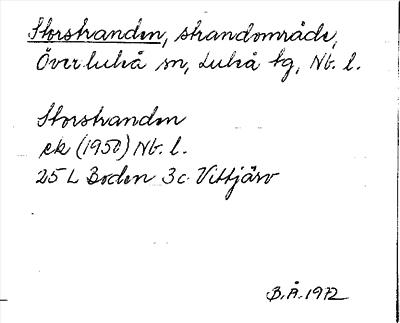 Storstranden, strandområde,
Överluleå sn, Luleå tg, Nb. l.
Storstranden
ek (1950) Nb. l.
25 L Boden 3c Vittjärv
B.Å. 1972